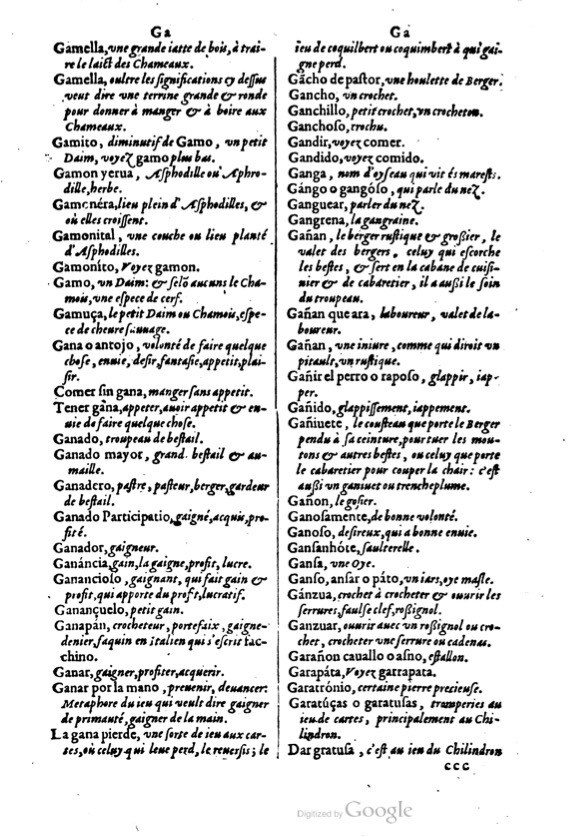 Ga
Gamella, vne grande iatte de bois, à trai-
re le laict des Chameaux.
Gamella, oultre les significations cy dessus
veut dire vne terrine grande & ronde
pour donner à manger & à boire aux
Chameaux.
Gamito, diminutif de Gamo, vn petit
Daim, voyez gamo plus bas.
Gamon yerua, Asphodille ou Aphro-
dille, herbe.
Gamonéra, lieu plein d'Asphodilles, &
où elles croissent.
Gamonital, vne couche ou lieu planté
d'Asphodilles.
Gamoníto, Voyez gamon.
Gamo, vn Daim: & selõ aucuns le Cha-
mois, vne espece de cerf.
Gamuça, le petit Daim ou Chamois, espe-
ce de cheure sauuage.
Gana o antojo, volonté de faire quelque
chose, enuie, desir, fantasie, appetit, plai-
sir.
Comer sin gana, manger sans appetit.
Tener gàna, appeter, auoir appetit & en-
uie de faire quelque chose.
Ganado, troupeau de bestail.
Ganado mayor, grand bestail & au-
maille.
Ganadero, pastre, pasteur, berger, gardeur
de bestail.
Ganado Participatio, gaigné, acquis, pro-
fité.
Ganador, gaigneur.
Ganáncia, gain, la gaigne, profit, lucre.
Gananciolo, gaignant, qui fait gain &
profit, qui apporte du profit, lucratif.
Genançuelo, petit gain.
Ganapán, crocheteur, portefaix, gaigne-
denier, faquin en italien qui s'escrit fac-
chino.
Ganar, gaigner, profiter, acquerir.
Ganar por la mano, preuenir, deuancer:
Metaphore du ieu qui veult dire gaigner
de primauté, gaigner de la main.
La gana pierde, vne sorte de ieu aux car-
tes, où celuy qui leue perd, le reuersis; le
Ga
ieu de coquilbert ou coquimbert à qui gai-
gne perd.
Gácho de pastor, vne houlette de Berger.
Gancho, vn crochet.
Ganchillo, petit crochet, vn crocheton.
Ganchoso, crochu.
Gandir, voyez comer.
Gandido, voyez comido.
Ganga, nom d'oyseau qui vit és marests.
Gángo o gangóso, qui parle du nez.
Ganguear, parler du nez.
Gangrena, la gangraine.
Gañan, le berger rustique & grossier, le
valet des bergers, celuy qui escorche
les bestes, & sert en la cabane de cuisi-
nier & de cabaretier, il a aussi le soin
du troupeau.
Gañan que ara, laboureur, valet de la-
boureur.
Gañan, vne iniure, comme qui diroit vn
pitault, vn rustique.
Gañir el perro o raposo, glappir, iap-
per.
Gañido, glappissement, iappement.
Gañiuete, le cousteau que porte le Berger
pendu à sa ceinture, pour tuer les mou-
tons & autres bestes, ou celuy que porte
le cabaretier pour couper la chair: c'est
aussi vn ganiuet ou trencheplume.
Gañon, le gosier.
Ganosamente, de bonne volonté.
Ganoso, desireux, qui a bonne enuie.
Gansanhóte, saulterelle.
Gansa, vne Oye.
Ganso, ansar o páto, vn iars, oye masle.
Gánzua, crochet à crocheter & ouurir les
serrures, faulse clef, roßignol.
Ganzuar, ouurir auec vn roßignol ou cro-
chet, crocheter vne serrure ou cadenas.
Garañon cauallo o asno, estallon.
Garapáta, Voyez garrapata.
Garatrónio, certaine pierre precieuse.
Garatúças o garatusas, tromperies au
ieu de cartes, principalement au Chi-
lindron.
Dar gratusa, c'est au ieu du Chilindron
ccc
Digitized by Google